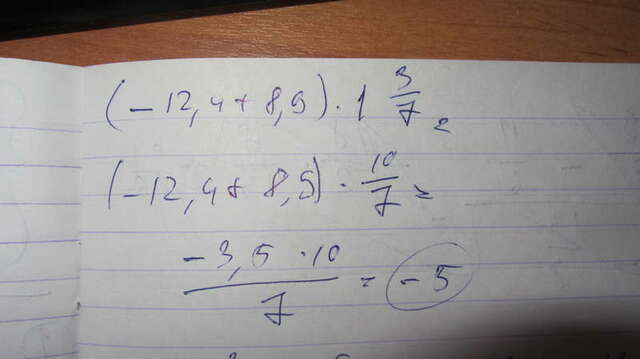 (-12,4+8,9)·1 3/7 =
(-12,4+8,9)·10/7 =
-3,5·10/7 = -5